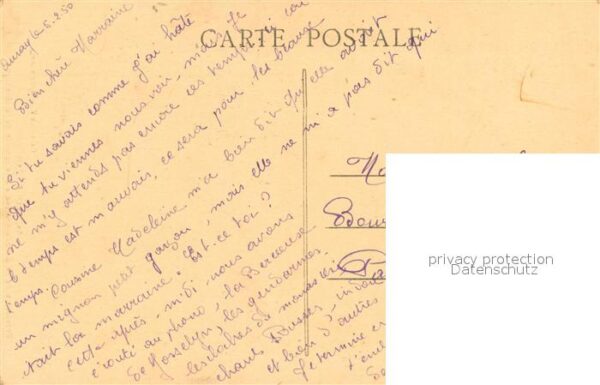 Auray le 5.2.50
Bien chère Marraine
CARTE POSTALE
Si tu savais comme j'ai hâte
que tu viennes nous voir, mais je
ne m'y attends pas encore ces temps-ci car
le temps est mauvais, ce sera pour les beaux
temps. Cousine Madeleine m'a bien dit qu'elle avait
un mignon petit garçon, mais elle ne m'a pas dit qui
était la marraine. Est-ce toi ?
Cette après-midi nous avons
écouté au phono, la Berceuse
de Jocelyn, les gendarmes
les cloches du monastère
et bien d'autres
Je termine en
privacy protection
Datenschutz